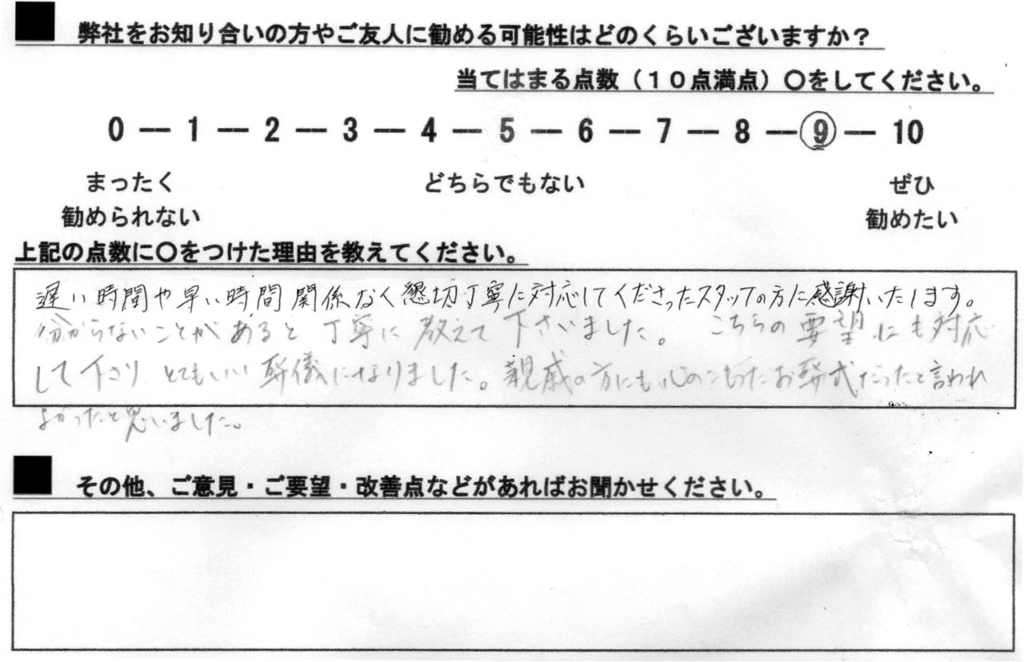 弊社をお知り合いの方やご友人に勧める可能性はどのくらいございますか？
当てはまる点数（１０点満点）〇をしてください。
0 ― 1 ― 2 ― 3 ― 4 ― 5 ― 6 ― 7 ― 8 ― 9 ― 10
まったく どちらでもない ぜひ
勧められない 勧めたい
上記の点数に〇をつけた理由を教えてください。
遅い時間や早い時間関係なく懇切丁寧に対応してくださったスタッフの方に感謝いたします。
分からないことがあると丁寧に教えて下さいました。 こちらの要望にも対応
して下さり とてもいい葬儀になりました。親戚の方にも心のこもったお葬式だったと言われ
よかったと思いました。
その他、ご意見・ご要望・改善点などがあればお聞かせください。